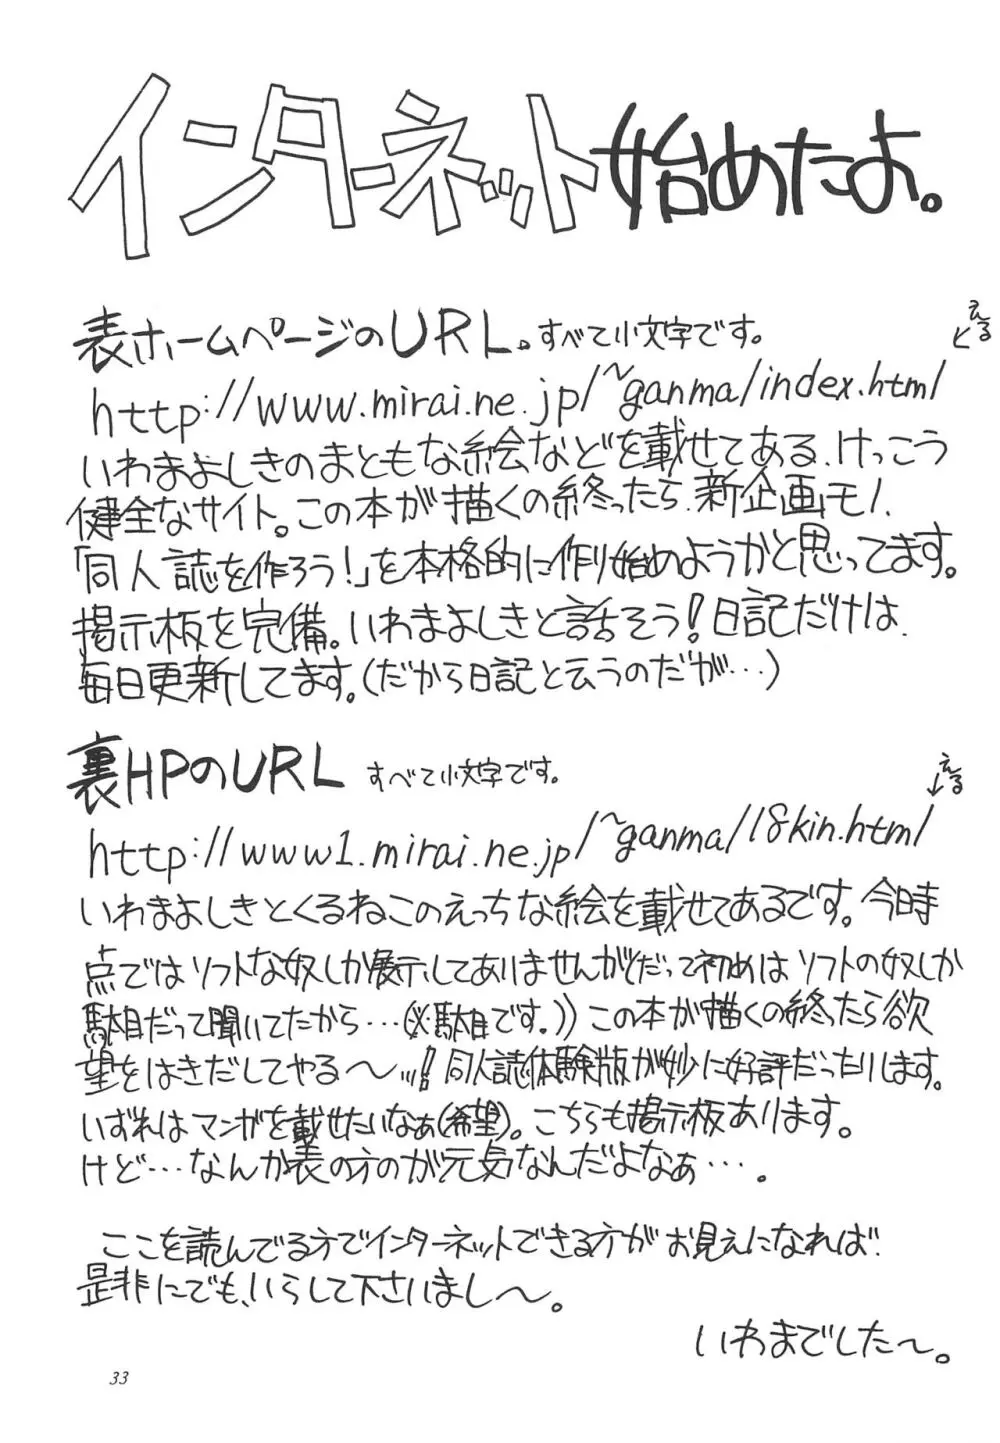 インターネット始めたよ。
表ホームページのURL。すべて小文字です。
える
http://www.mirai.ne.jp/~ganma/index.html
いわまよしきのまともな絵などを載せてある、けっこう
健全なサイト。この本が描くの終ったら、新企画モノ、
「同人誌を作ろう!」を本格的に作り始めようかと思ってます。
掲示板を完備。いわまよしきと話そう!日記だけは、
毎日更新してます。(だから日記と云うのだが…)
裏HPのURL すべて小文字です。
える
http://www1.mirai.ne.jp/~ganma/18kin.html
いわまよしきとくるねこのえっちな絵を載せてあるです。今日時
点ではソフトな奴しか展示してありませんがだって初めはソフトの奴しか
駄目だって聞いてたから…(※駄目です。))この本が描くの終ったら欲
望をはきだしてやる〜…!!同人誌体験版が妙に好評だったりします。
いずれはマンガを載せたいなぁ(希望)。こちらも掲示板あります。
けど…なんか表の方のが元気なんだよなぁ…。
ここを読んでる方でインターネットできる方がお見えになれば、
是非にでも、いらして下さいまし〜。
いわまでした〜。
33